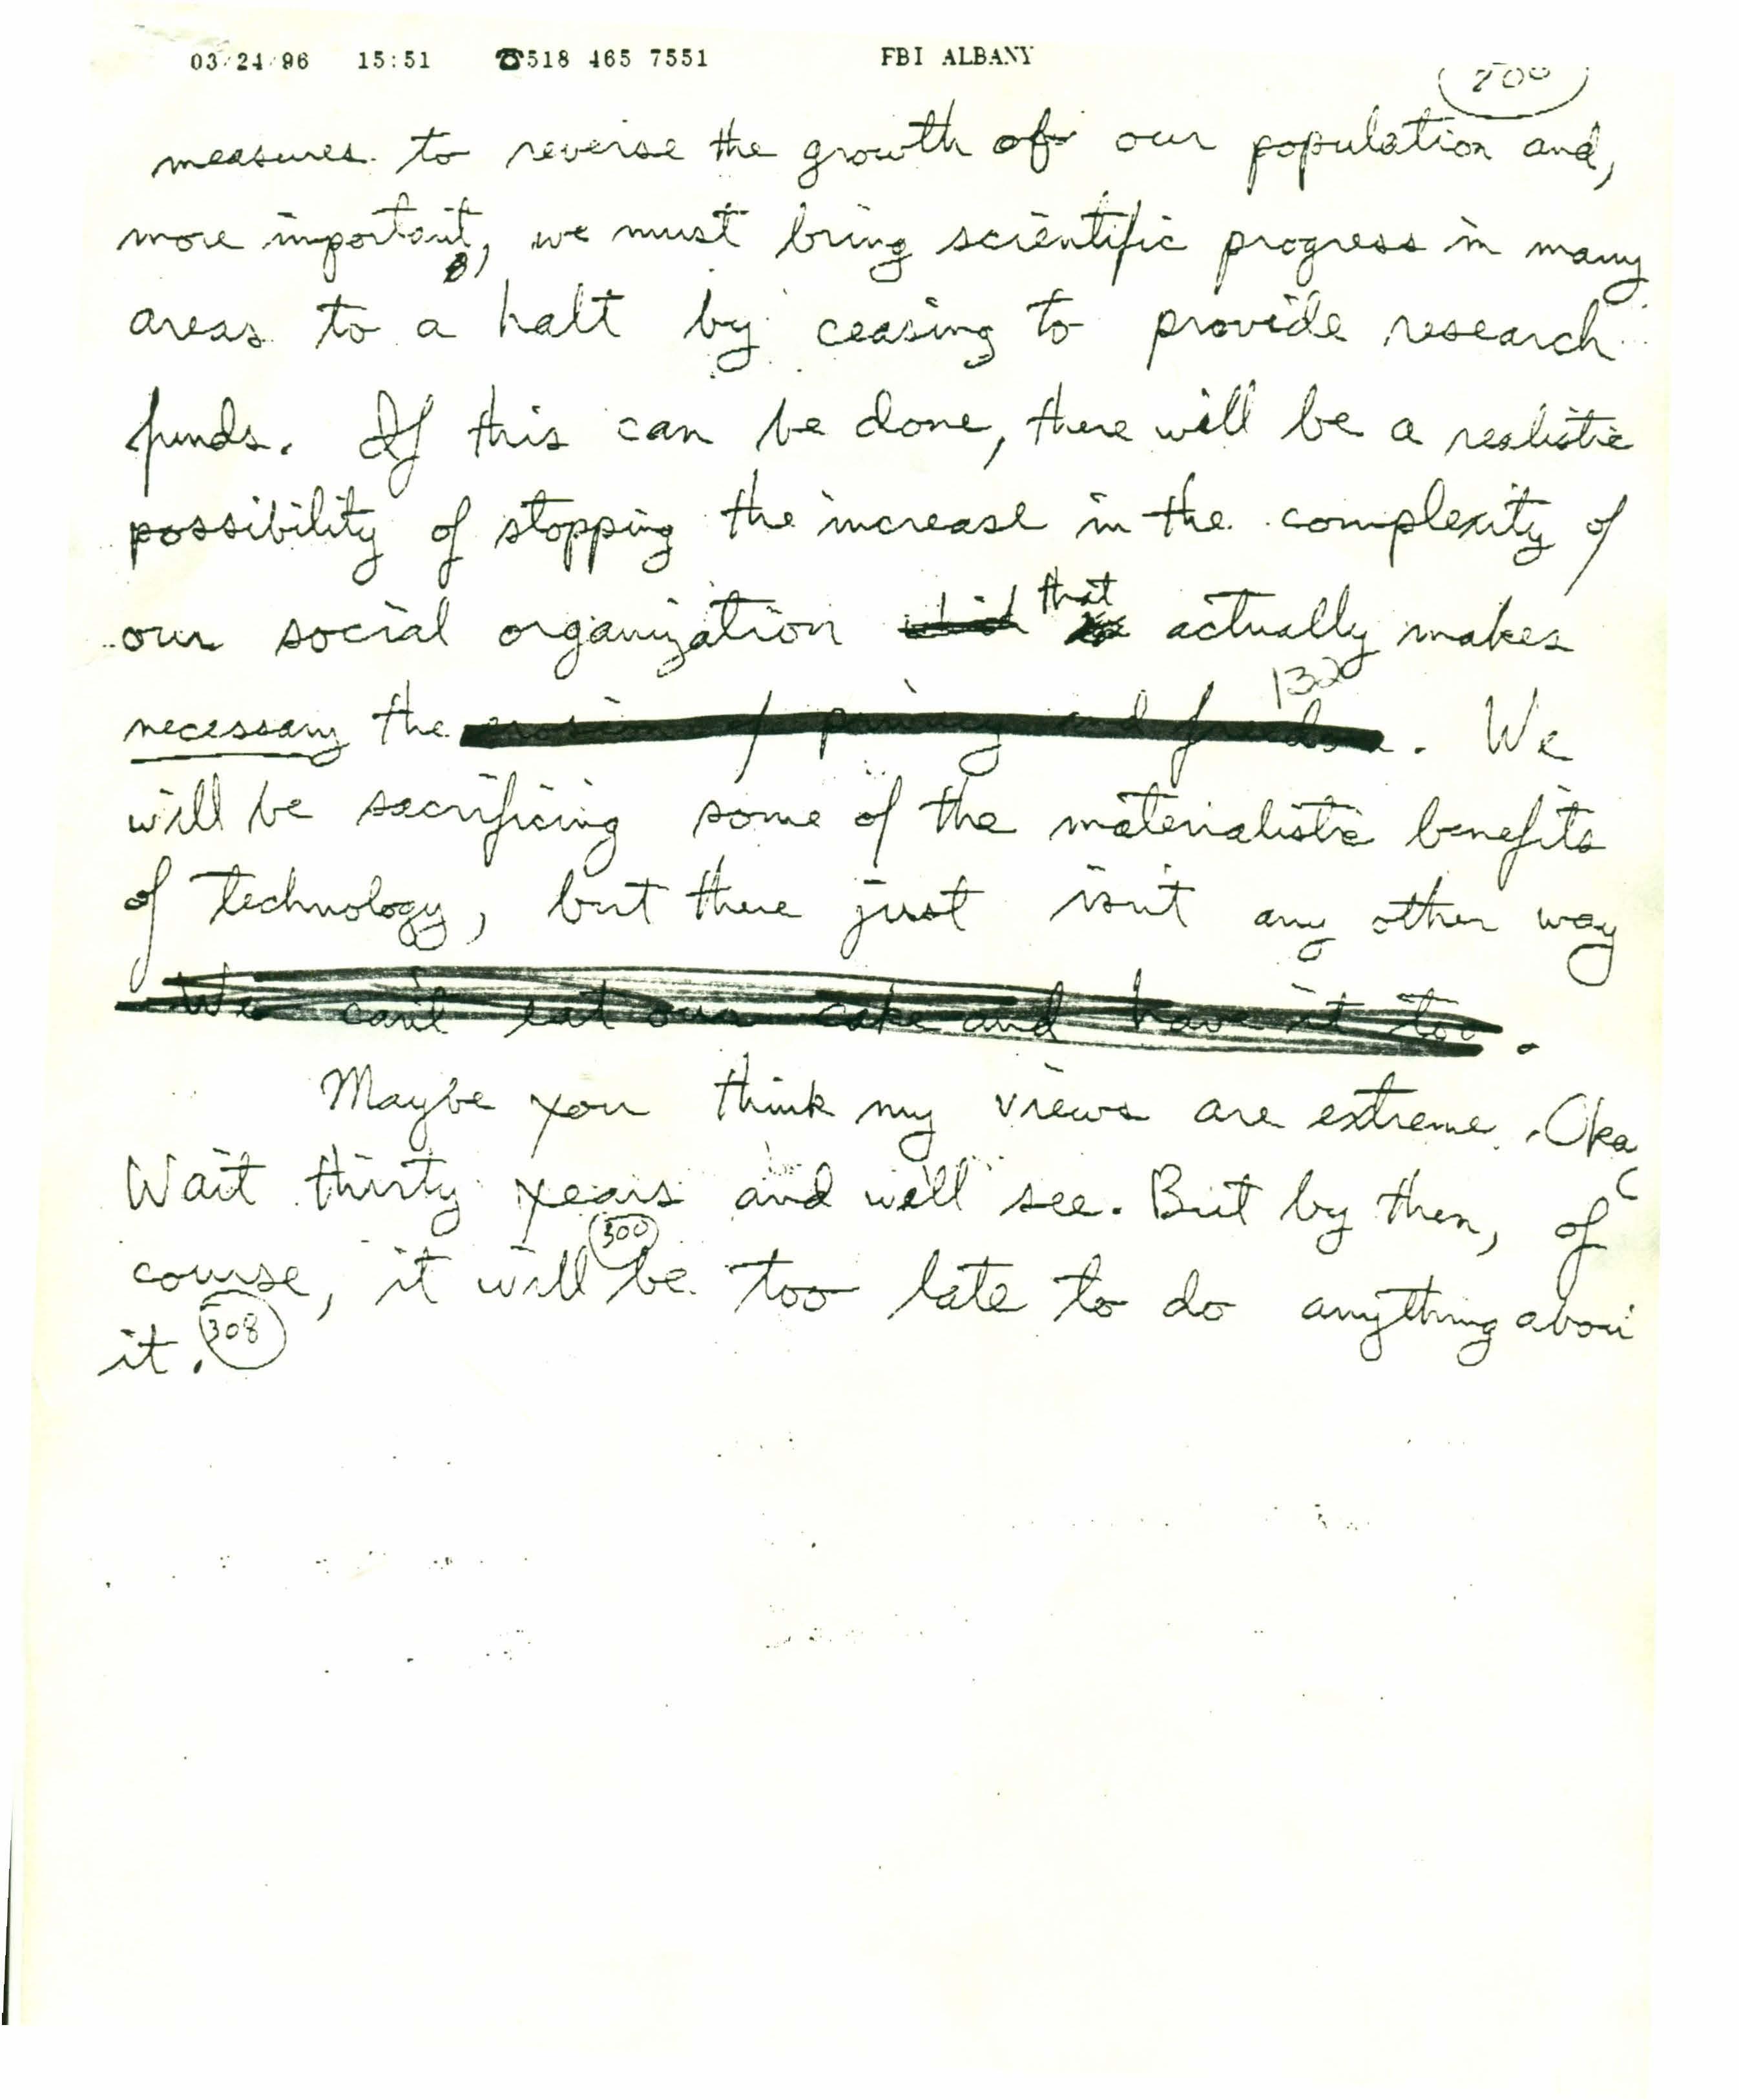 03/24/96 15:51 ☎518 465 7551 FBI ALBANY
200
measures to reverse the growth of our population and,
more important, we must bring scientific progress in many
areas to a halt by ceasing to provide research
funds. If this can be done, there will be a realistic
possibility of stopping the increase in the complexity of
our social organization that actually makes
132
necessary the erosion of privacy and freedom. We
will be sacrificing some of the materialistic benefits
of technology, but there just isn't any other way
We can't eat our cake and have it too.
Maybe you think my views are extreme. Oka
Wait thirty years and we'll see. But by then, of
300
course, it will be too late to do anything abou
it. 308